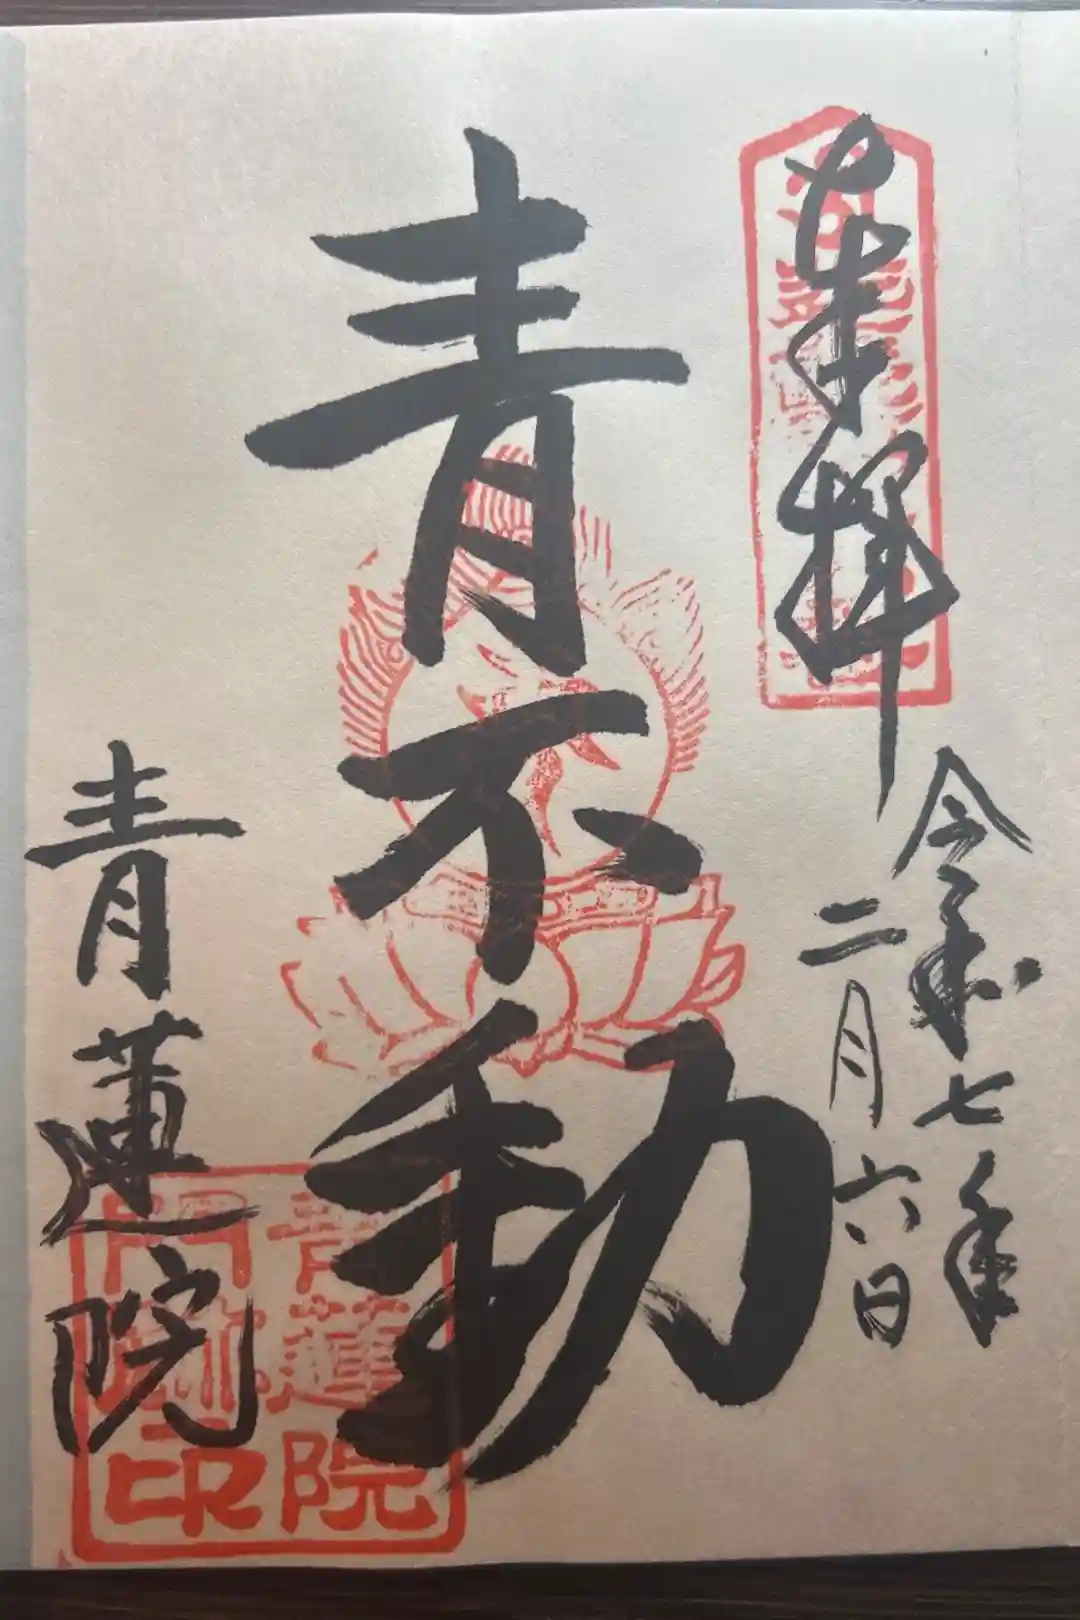 奉拝
令和七年
二月六日
青不動
青蓮院
青蓮院
門跡印